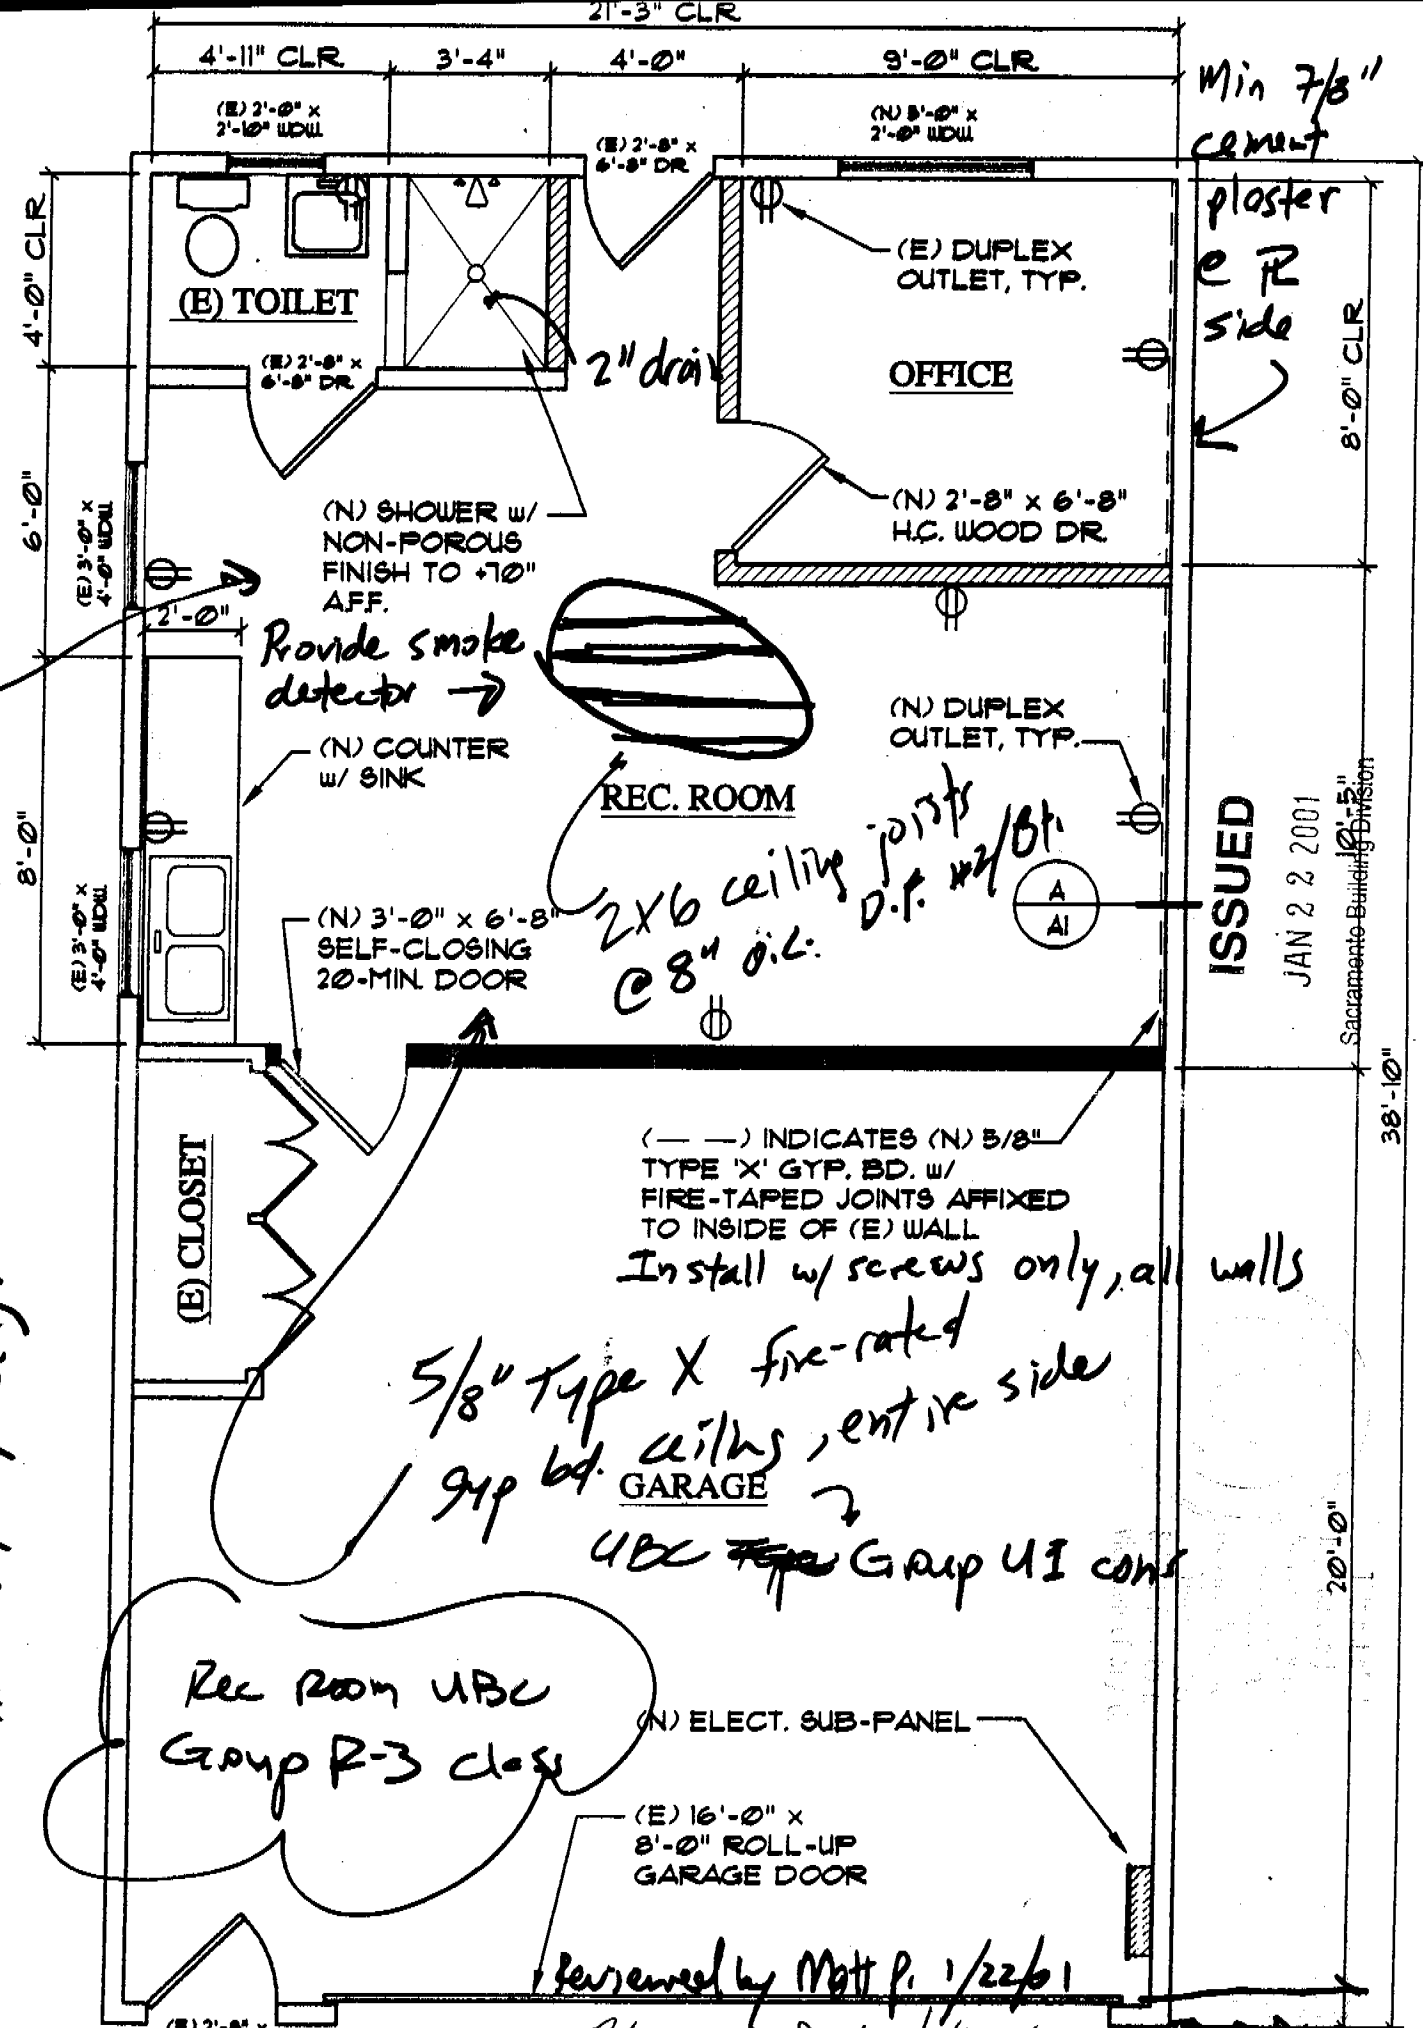 21'-3" CLR
4'-11" CLR 3'-4" 4'-0" 9'-0" CLR
Min 7/8"
cement
plaster
@ PL
side
(E) 2'-0" x
2'-10" WDW
(E) 2'-8" x
6'-8" DR
(N) 5'-0" x
2'-0" WDW
4'-0" CLR
(E) TOILET
(E) 2'-8" x
6'-8" DR
2" drain
(E) DUPLEX
OUTLET, TYP.
OFFICE
8'-0" CLR
6'-0"
(E) 3'-0" x
4'-0" WDW
(N) SHOWER w/
NON-POROUS
FINISH TO +70"
A.F.F.
(N) 2'-8" x 6'-8"
H.C. WOOD DR.
2'-0"
Provide smoke
detector →
(N) COUNTER
w/ SINK
(N) DUPLEX
OUTLET, TYP.
REC. ROOM
8'-0"
(E) 3'-0" x
4'-0" WDW
2x6 ceiling joists
@ 8" o.c. D.F. #2/Bt.
A
A1
ISSUED
JAN 22 2001
Sacramento Building Division
10'-5"
(N) 3'-0" x 6'-8"
SELF-CLOSING
20-MIN. DOOR
38'-10"
(E) CLOSET
(— —) INDICATES (N) 5/8"
TYPE 'X' GYP. BD. w/
FIRE-TAPED JOINTS AFFIXED
TO INSIDE OF (E) WALL
Install w/ screws only, all walls
5/8" Type X fire-rated
gyp bd. ceiling, entire side
GARAGE
UBC Type Group U1 cons
20'-0"
Rec Room UBC
Group R-3 class
(N) ELECT. SUB-PANEL
(E) 16'-0" x
8'-0" ROLL-UP
GARAGE DOOR
Reviewed by Matt P. 1/22/01
(E) 2'-8" x